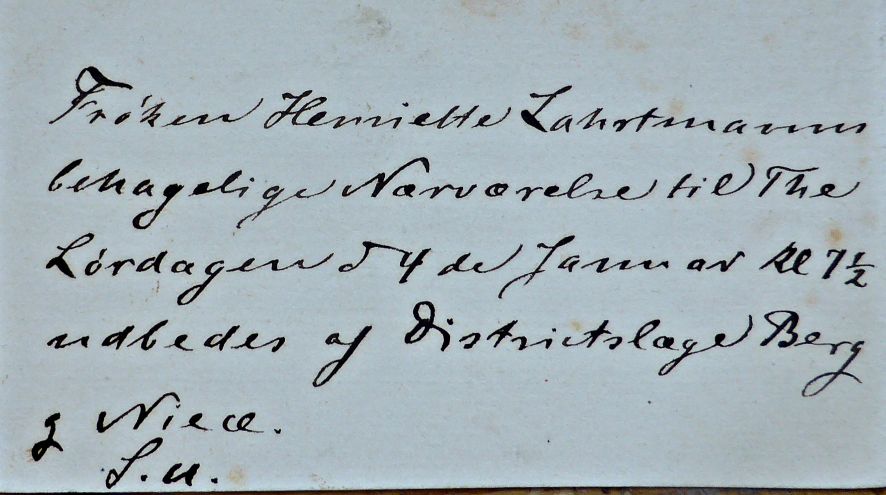 Frøken Henriette Lahrtmanns
behagelige Nærværelse til The
Lørdagen d 4 de Januar Kl 7½
udbedes af Districtslæge Berg
g Niece.
S. u.